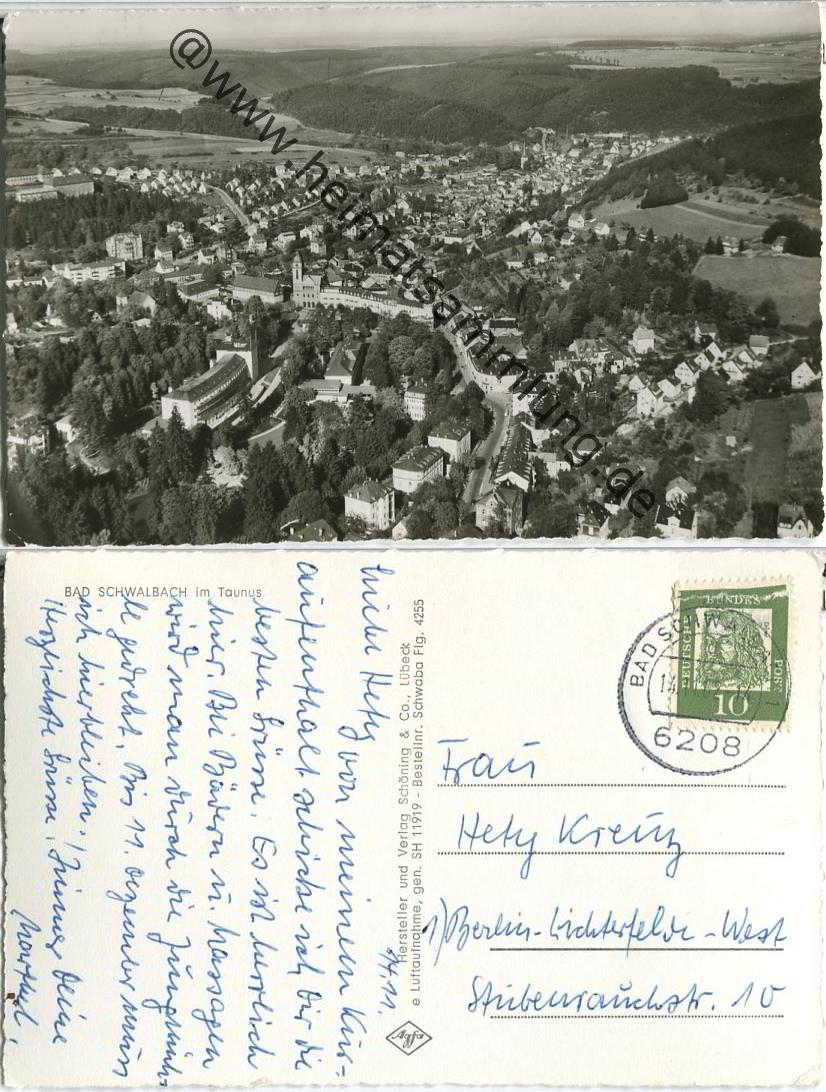 @www.heimatsammlung.de
BAD SCHWALBACH im Taunus
14.11.
Liebe Hety von meinem Kur-
aufenthalt schicke ich Dir die
besten Grüsse. Es ist herrlich
hier. Bei Bädern u. Massagen
wird man durch die
de gedreht. Bis 11. Dezember muss
ich hierbleiben! Immer Deine
Herzlichste Grüsse!
Hersteller und Verlag Schöning & Co., Lübeck
e Luftaufnahme, gen. SH 11919 - Bestellnr. Schwaba Flg. 4255
Agfa
BAD SCHWALBACH
1
6208
DEUTSCHE
BUNDES
POST
10
Frau
Hety Kreuz
1) Berlin-Lichterfelde-West
Stubenrauchstr. 10